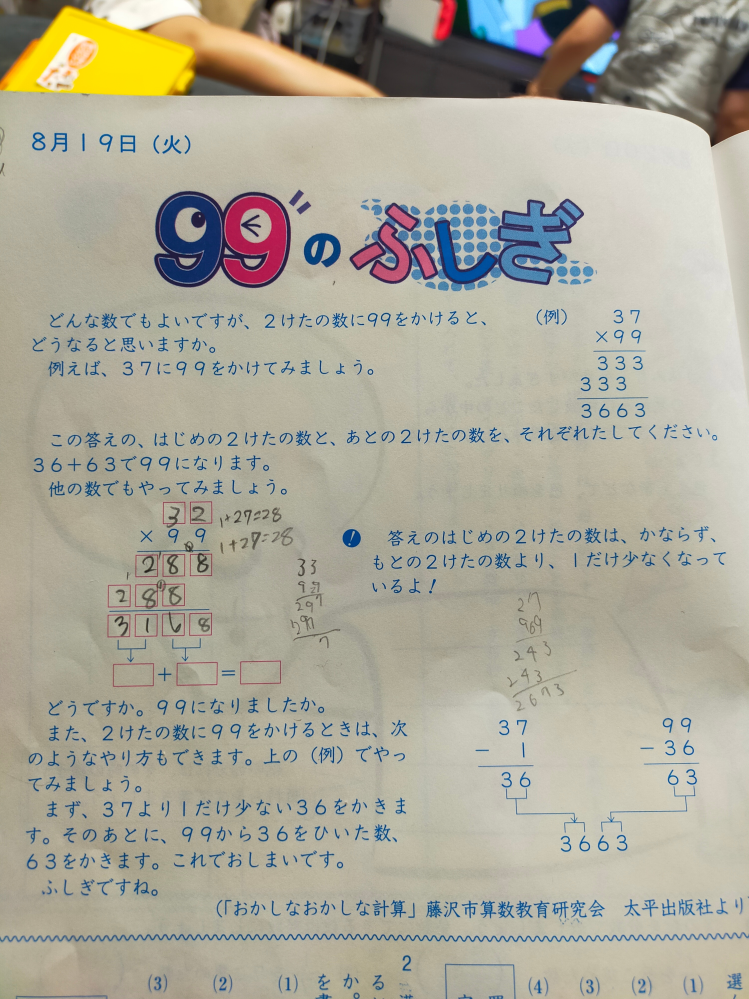 8月19日（火）
99のふしぎ
どんな数でもよいですが、2けたの数に99をかけると、
どうなると思いますか。
例えば、37に99をかけてみましょう。
（例）
37
×99
333
333
3663
この答えの、はじめの2けたの数と、あとの2けたの数を、それぞれたしてください。
36＋63で99になります。
他の数でもやってみましょう。
32
×99
288
288
3168
＋ ＝
1+27=28
1+27=28
33
297
7
! 答えのはじめの2けたの数は、かならず、
もとの2けたの数より、1だけ少なくなって
いるよ！
27
243
243
2673
どうですか。99になりましたか。
また、2けたの数に99をかけるときは、次
のようなやり方もできます。上の（例）でやっ
てみましょう。
まず、37より1だけ少ない36をかきま
す。そのあとに、99から36をひいた数、
63をかきます。これでおしまいです。
ふしぎですね。
37
－ 1
36
99
－36
63
3663
（「おかしなおかしな計算」藤沢市算数教育研究会　太平出版社より
2
(3) (2) (1)
(4) (3) (2) (1) 選